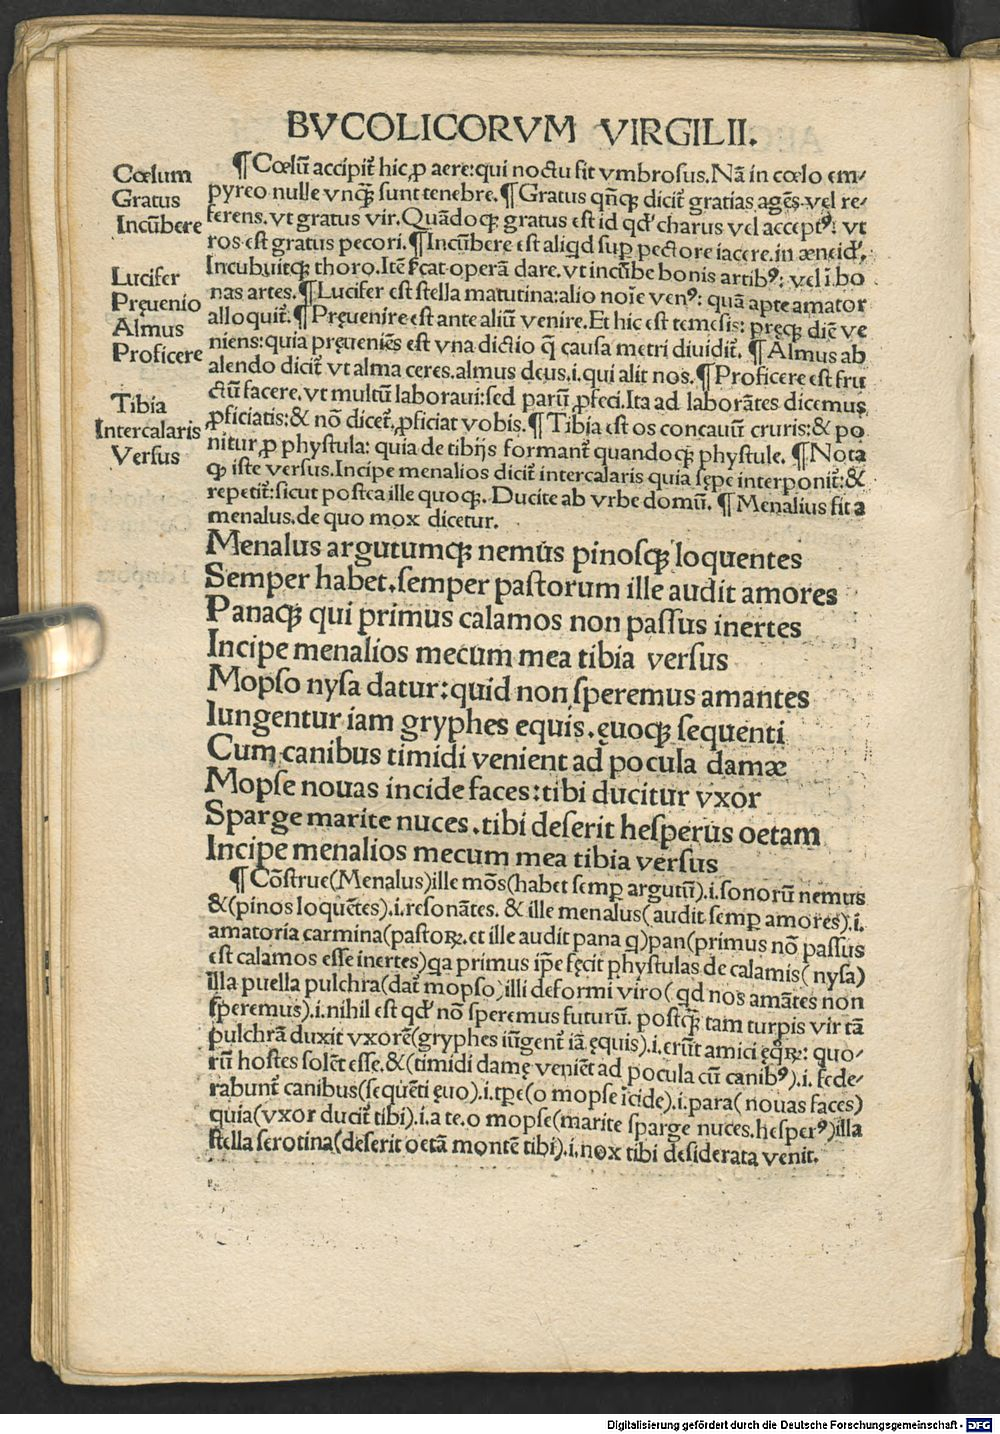 BVCOLICORVM VIRGILII.
Cœlum
Gratus
Incūbere
Lucifer
Pręuenio
Almus
Proficere
Tibia
Intercalaris
Versus
¶ Cœlū accipit᷑ hic ꝓ aere: qui noctu fit vmbrosus. Nā in cœlo em⸗
pyreo nulle vnqꝫ sunt tenebre. ¶ Gratus qn̄qꝫ dicit᷑ gratias agēs vel re⸗
ferens. vt gratus vir. Quādoqꝫ gratus est id qd' charus vel acceptꝰ: vt
ros est gratus pecori. ¶ Incūbere est aliqd sup̱ pectore iacere. in æneid'.
Incubuitqꝫ thoro. Itē sc̄at operā dare. vt incūbe bonis artibꝰ: vel ī bo
nas artes. ¶ Lucifer est stella matutina: alio noīe venꝰ: quā apte amator
alloquit᷑. ¶ Pręuenire est ante aliū venire. Et hic est temesis: pręqꝫ diē ve
niens: quia pręueniēs est vna dictio q̄ causa metri diuidit᷑. ¶ Almus ab
alendo dicit᷑ vt alma ceres. almus deus .i. qui alit nos. ¶ Proficere est fru
ctū facere. vt multū laboraui: sed parū ꝓfeci. Ita ad laborātes dicemus
ꝓficiatis: & nō dicet᷑ ꝓficiat vobis. ¶ Tibia est os concauū cruris: & po
nitur ꝓ phystula: quia de tibijs formant᷑ quandoqꝫ phystule. ¶ Nota
qꝫ iste versus. Incipe menalios dicit᷑ intercalaris quia sępe interponit᷑: &
repetit᷑: sicut postea ille quoqꝫ. Ducite ab vrbe domū. ¶ Menalius fit a
menalus. de quo mox dicetur.
Menalus argutumqꝫ nemus pinosqꝫ loquentes
Semper habet. semper pastorum ille audit amores
Panaqꝫ qui primus calamos non passus inertes
Incipe menalios mecum mea tibia versus
Mopso nysa datur: quid non speremus amantes
Iungentur iam gryphes equis. ęuoqꝫ sequenti
Cum canibus timidi venient ad pocula damæ
Mopse nouas incide faces: tibi ducitur vxor
Sparge marite nuces. tibi deserit hesperus oetam
Incipe menalios mecum mea tibia versus
¶ Cōstrue (Menalus) ille mōs (habet semp̱ argutū) .i. sonorū nemus
& (pinos loquētes) .i. resonātes. & ille menalus (audit semp̱ amores) .i.
amatoria carmina (pastoꝝ. et ille audit pana q) pan (primus nō passus
est calamos esse inertes) qa primus ip̄e fęcit phystulas de calamis (nysa)
illa puella pulchra (dat᷑ mopso) illi deformi viro (qd nos amātes non
speremus) .i. nihil est qd' nō speremus futurū. postqꝫ tam turpis vir tā
pulchrā duxit vxorē (gryphes iūgent᷑ iā ęquis) .i. erūt amici ęqꝝ: quo⸗
rū hostes solēt esse. & (timidi damę veniēt ad pocula cū canibꝰ) .i. fede⸗
rabunt᷑ canibus (sequēti ęuo) .i. tp̄e (o mopse īcide) .i. para (nouas faces)
quia (vxor ducit᷑ tibi) .i. a te. o mopse (marite sparge nuces. hesperꝰ) illa
stella serotina (deserit oetā montē tibi) .i. nox tibi desiderata venit.
Digitalisierung gefördert durch die Deutsche Forschungsgemeinschaft - DFG